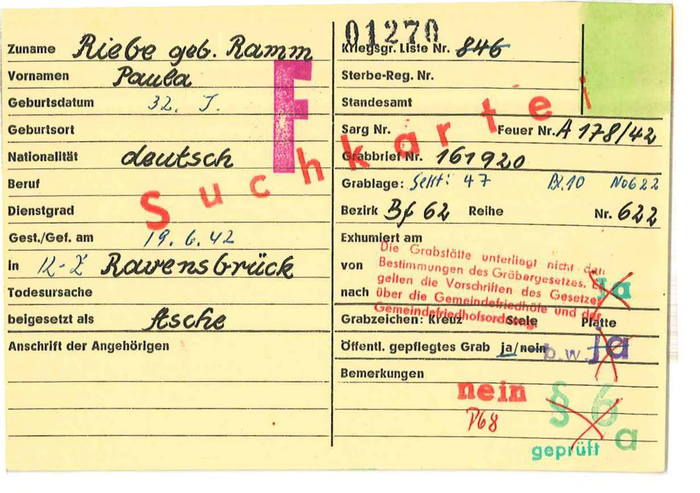 01270
Zuname Riebe geb. Ramm
Kriegsgr. Liste Nr. 846
Vornamen Paula
Sterbe-Reg. Nr.
Geburtsdatum 32. J.
Standesamt
Geburtsort
Sarg Nr. Feuer Nr. A 178/42
Nationalität deutsch
Grabbrief Nr. 161920
Beruf
Grablage: 47 Bl.10 No622
Dienstgrad
Bezirk Bf 62 Reihe Nr. 622
Gest./Gef. am 19.6.42
Exhumiert am
In K-Z Ravensbrück
von
Todesursache
nach
beigesetzt als Asche
Grabzeichen: Kreuz Stele Platte
Anschrift der Angehörigen
Öffentl. gepflegtes Grab ja/nein b.w. ja
Bemerkungen
F
Suchkartei
Die Grabstätte unterliegt nicht den
Bestimmungen des Gräbergesetzes. Es
gelten die Vorschriften des Gesetzes
über die Gemeindefriedhöfe und der
Gemeindefriedhofsordnung.
ja
nein
P68
§ 6
a
geprüft